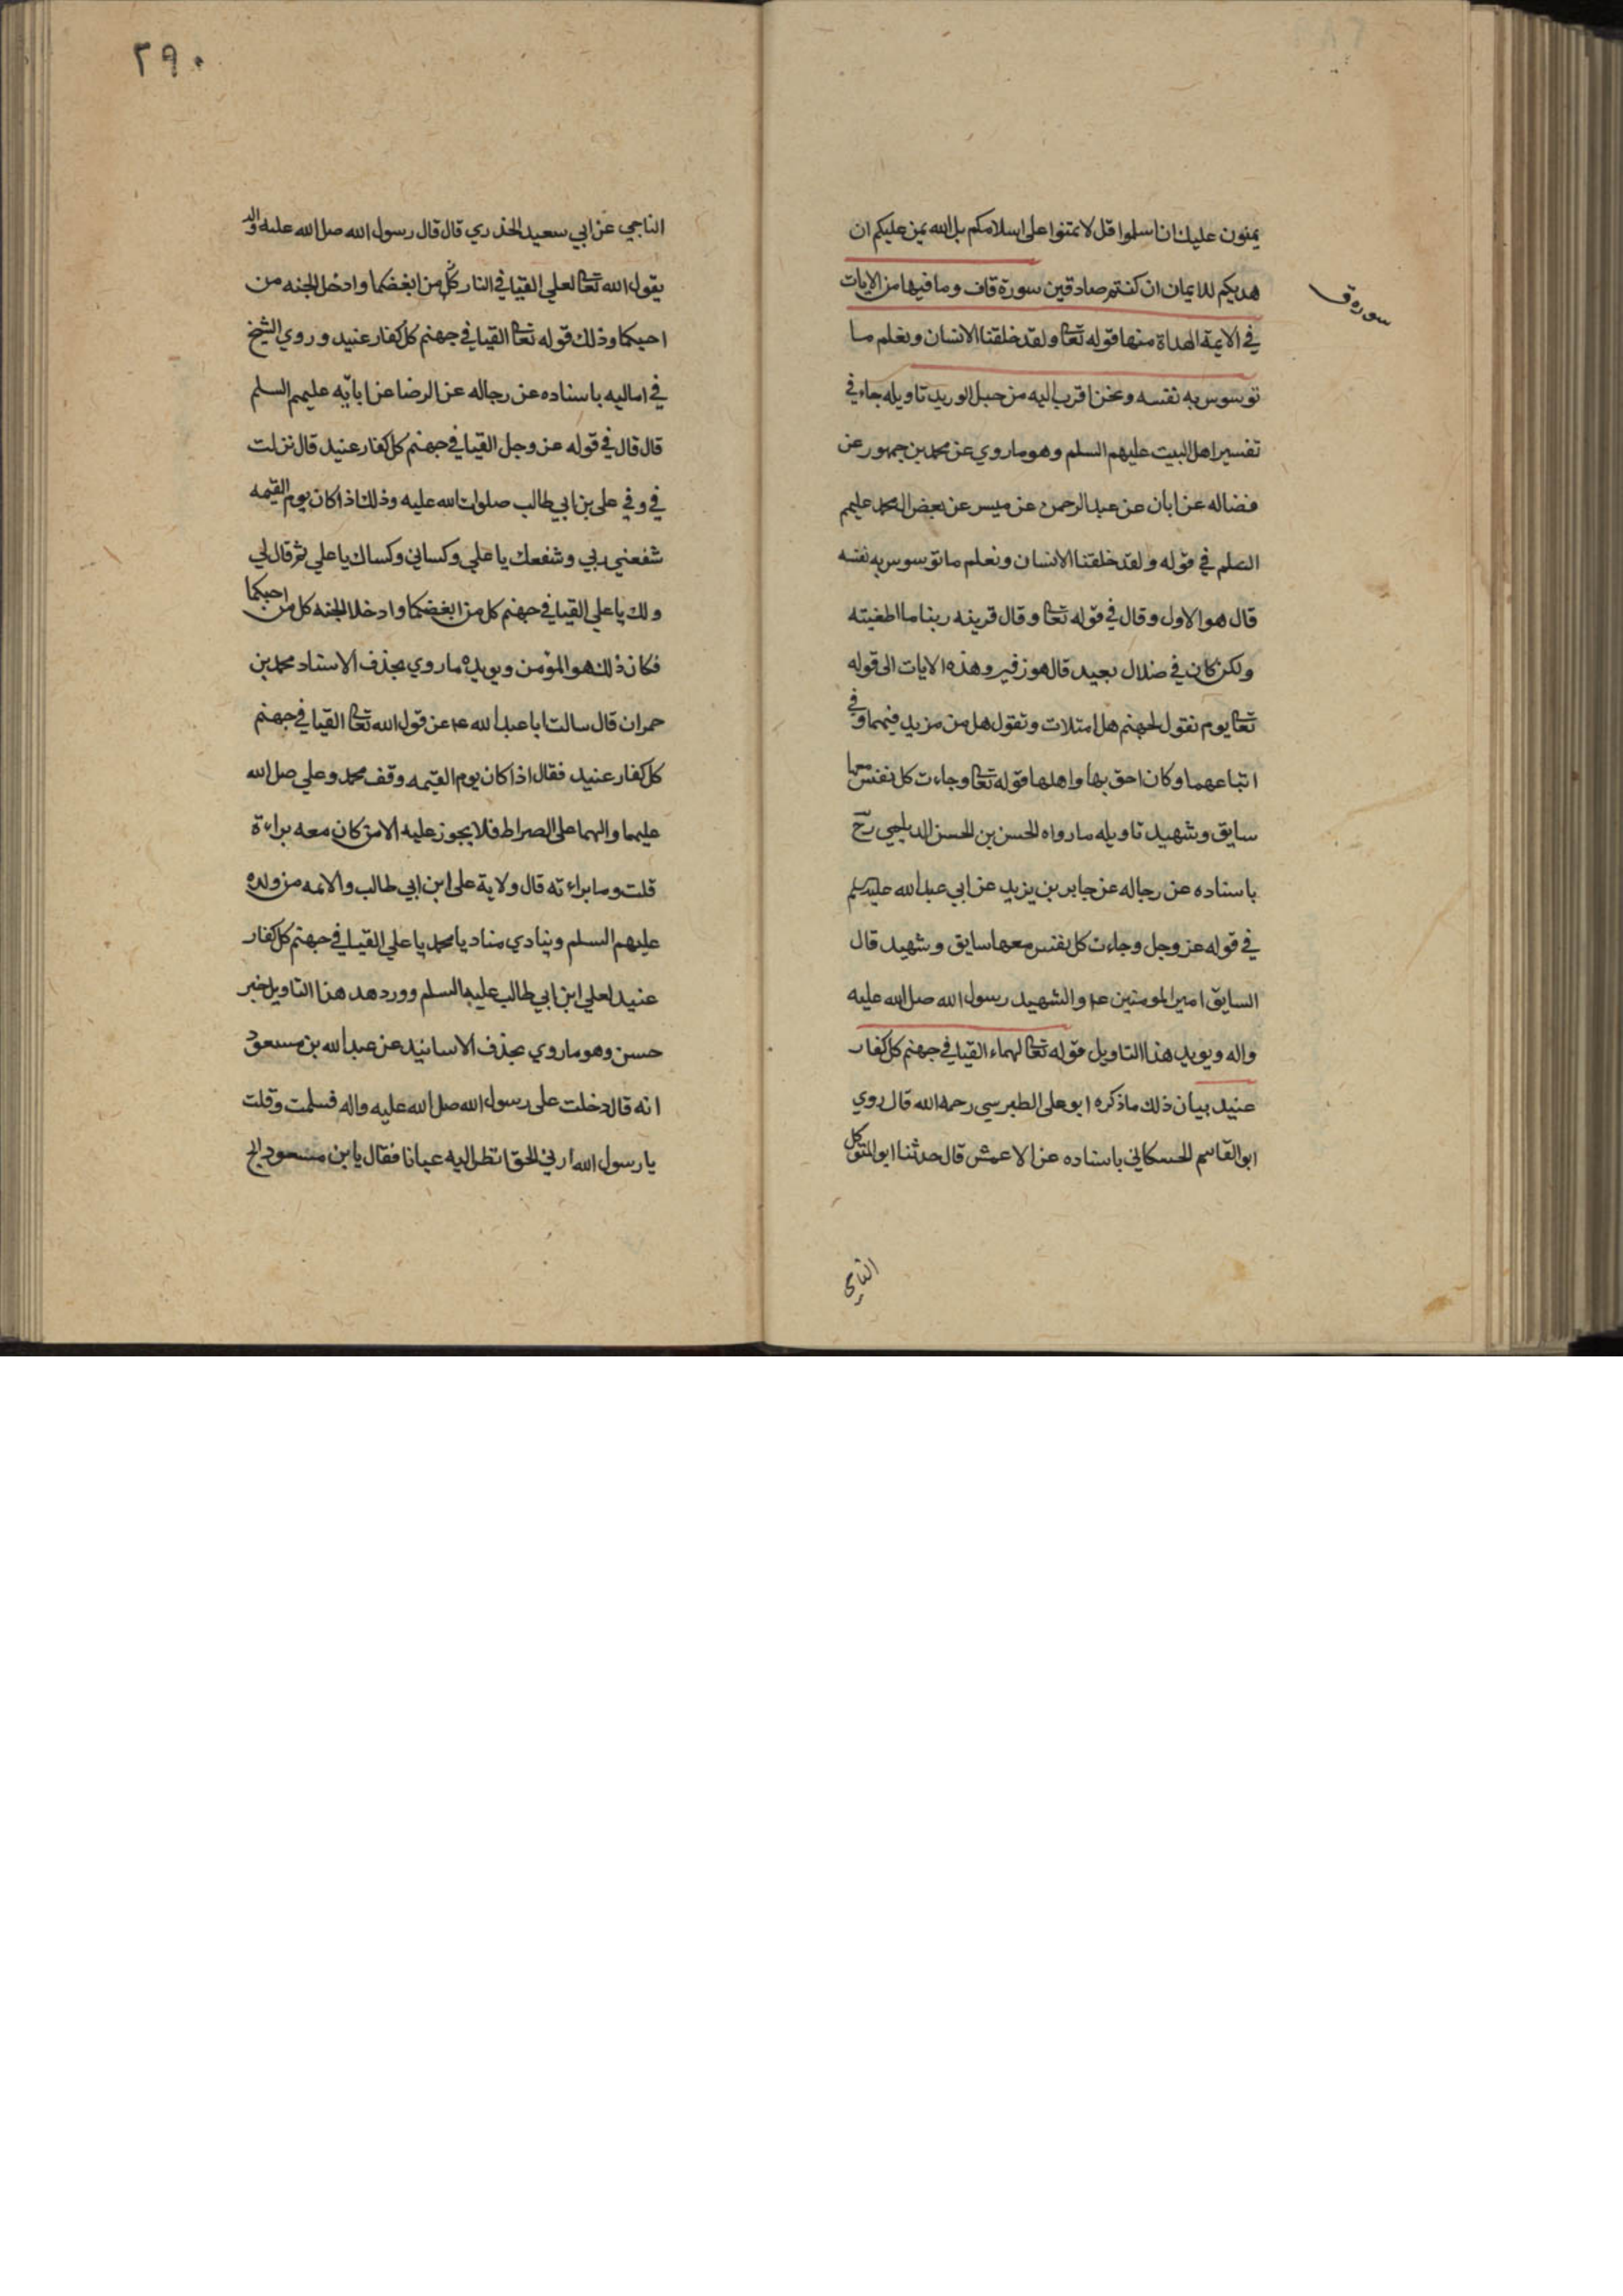 يمنون عليك ان اسلموا قل لا تمنوا على اسلامكم بل الله يمن عليكم ان
هديكم للايمان ان كنتم صادقين سورة قاف وما فيها من الايات
سورة ق
في الايمة الهداة منها قوله تعا ولقد خلقنا الانسان ونعلم ما
توسوس به نفسه ونحن اقرب اليه من حبل الوريد تاويله جاء في
تفسير اهل البيت عليهم السلم وهو ما روي عن محمد بن جمهور عن
فضاله عن ابان عن عبد الرحمن عن ميسر عن بعض ال محمد عليهم
السلم في قوله ولقد خلقنا الانسان ونعلم ما توسوس به نفسه
قال هو الاول وقال في قوله تعا وقال قرينه ربنا ما اطغيته
ولكن كان في ضلال بعيد قال هو زفير وهذه الايات الى قوله
تعا يوم نقول لجهنم هل امتلات وتقول هل من مزيد فيهما وفي
اتباعهما وكان احق بها واهلها قوله تعا وجاءت كل نفس معها
سايق وشهيد تاويله ما رواه الحسن بن الحسن الديلمي رح
باسناده عن رجاله عن جابر بن يزيد عن ابي عبد الله عليه السلم
في قوله عز وجل وجاءت كل نفس معها سايق وشهيد قال
السايق امير المومنين ع والشهيد رسول الله صلى الله عليه
واله ويويد هذا التاويل قوله تعا لهماء القيا في جهنم كل كفار
عنيد بيان ذلك ما ذكره ابو على الطبرسي رحمه الله قال روي
ابو القاسم الحسكاني باسناده عن الاعمش قال حدثنا ابو المتوكل
الناجي
٢٩٠
الناجي عن ابي سعيد الخذري قال قال رسول الله صلى الله عليه واله
يقول الله تعا لعلي القيا في النار كل من ابغضكما وادخل الجنه من
احبكما وذلك قوله تعا القيا في جهنم كل كفار عنيد وروي الشيخ
في اماليه باسناده عن رجاله عن الرضا عن ابائه عليهم السلم
قال قال في قوله عز وجل القيا في جهنم كل كفار عنيد قال نزلت
في وفي على بن ابي طالب صلوات الله عليه وذلك اذا كان يوم القيمه
شفعني ربي وشفعك يا علي وكساني وكساك يا علي ثم قال لي
ولك يا علي القيا في جهنم كل من ابغضكما وادخلا الجنه كل من احبكما
فكان ذلك هو المؤمن ويويده ما روي بحذف الاسناد محمد بن
حمران قال سالت ابا عبد الله ع عن قول الله تعا القيا في جهنم
كل كفار عنيد فقال اذا كان يوم القيمه وقف محمد وعلي صلى الله
عليهما والهما على الصراط فلا يجوز عليه الا من كان معه براءة
قلت وما براءته قال ولاية على ابن ابي طالب والائمه من ولده
عليهم السلم وينادي مناد يا محمد يا علي القيا في جهنم كل كفار
عنيد لعلي ابن ابي طالب عليهما السلم وورد هد هذا التاويل خبر
حسن وهو ما روي بحذف الاسانيد عن عبد الله بن مسعود
انه قال دخلت على رسول الله صلى الله عليه واله فسلمت وقلت
يا رسول الله ارني الحق انظر اليه عيانا فقال يا بن مسعود لج